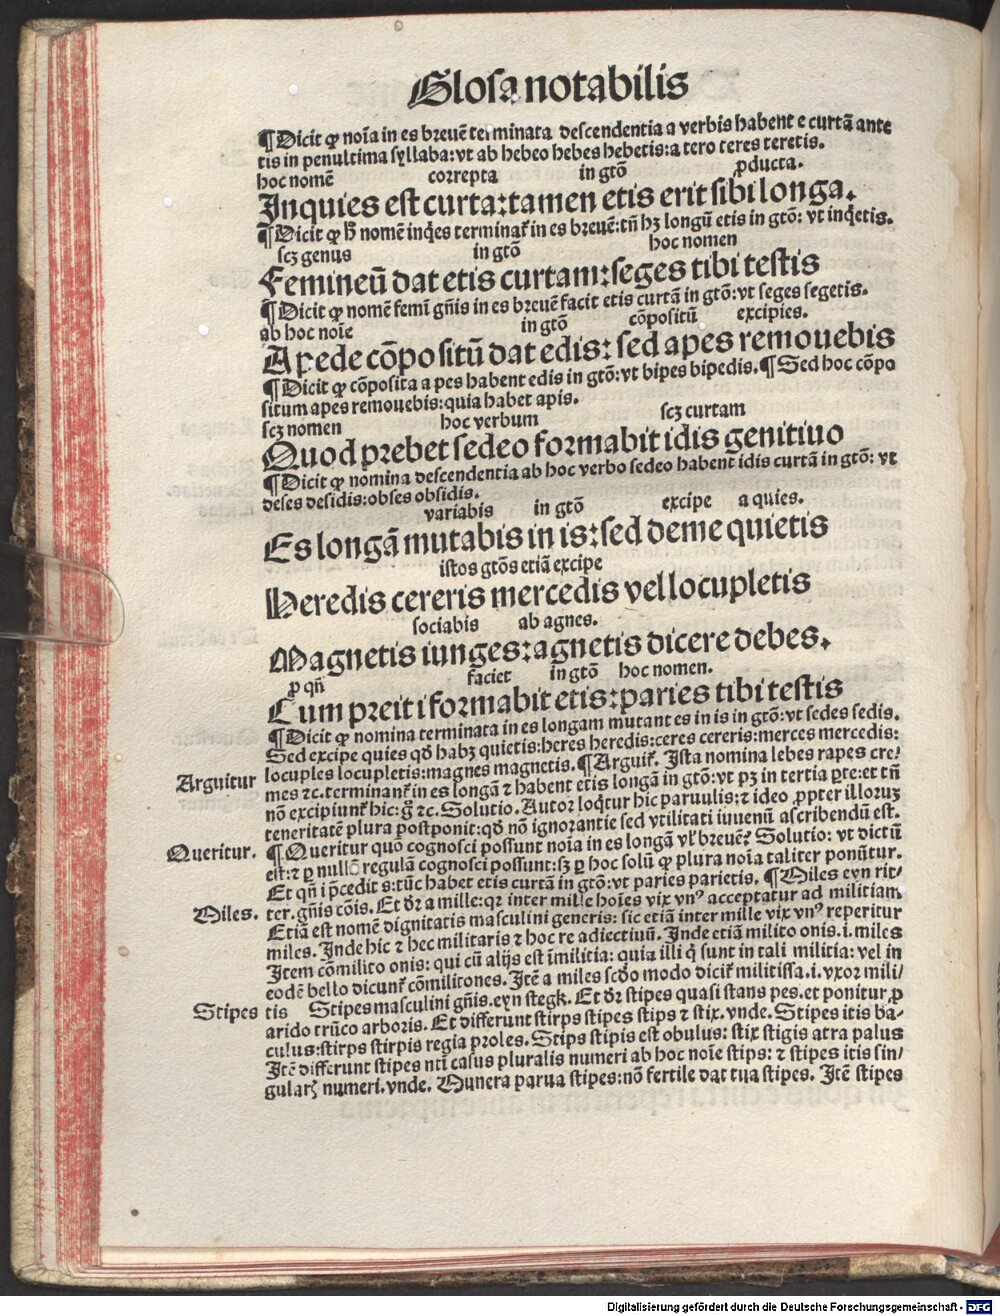 Glosa notabilis
¶Dicit ꝙ noīa in es breuē terminata descendentia a verbis habent e curtā ante
tis in penultima syllaba: vt ab hebeo hebes hebetis: a tero teres teretis.
hoc nomē correpta in gtō ꝓducta.
Inquies est curta: tamen etis erit sibi longa.
¶Dicit ꝙ h̄ nomē inq̇es terminat̄ in es breuē: tn̄ hꝫ longū etis in gtō: vt inq̇etis.
scꝫ genus in gtō hoc nomen
Femineū dat etis curtam: seges tibi testis
¶Dicit ꝙ nomē femī gn̄is in es breuē facit etis curtā in gtō: vt seges segetis.
ab hoc noīe in gtō cōpositū excipies.
A pede cōpositū dat edis: sed apes remouebis
¶Dicit ꝙ cōposita a pes habent edis in gtō: vt bipes bipedis. ¶Sed hoc cōpo
situm apes remouebis: quia habet apis.
scꝫ nomen hoc verbum scꝫ curtam
Quod prebet sedeo formabit idis genitiuo
¶Dicit ꝙ nomina descendentia ab hoc verbo sedeo habent idis curtā in gtō: vt
deses desidis: obses obsidis.
variabis in gtō excipe a quies.
Es longā mutabis in is: sed deme quietis
istos gtōs etiā excipe
Heredis cereris mercedis vel locupletis
sociabis ab agnes.
Magnetis iunges: agnetis dicere debes.
ꝓ qn̄ faciet in gtō hoc nomen.
Cum preit i formabit etis: paries tibi testis
¶Dicit ꝙ nomina terminata in es longam mutant es in is in gtō: vt sedes sedis.
Sed excipe quies qd̄ habꝫ quietis: heres heredis: ceres cereris: merces mercedis:
locuples locupletis: magnes magnetis. ¶Arguit̄. Ista nomina lebes rapes cre/
Arguitur
mes ⁊c. terminant̄ in es longā ⁊ habent etis longā in gtō: vt pꝫ in tertia ꝑte: et tn̄
nō excipiunt̄ hic: g̊ ⁊c. Solutio. Autor loq̇tur hic paruulis; ⁊ ideo ꝓpter illoruꝫ
teneritatē plura postponit: qd̄ nō ignorantie sed vtilitati iuuenū ascribendū est.
Queritur.
¶Queritur quō cognosci possunt noīa in es longā vl̓ breuē? Solutio: vt dictū
est: ⁊ ꝑ nullā regulā cognosci possunt: sꝫ ꝑ hoc solū ꝙ plura noīa taliter ponūtur.
Et qn̄ i p̄cedit s: tūc habet etis curtā in gtō: vt paries parietis. ¶Miles eyn rit/
Miles.
ter. gn̄is cōis. Et dr̄ a mille: qr inter mille hoīes vix vnꝰ acceptatur ad militiam
Etiā est nomē dignitatis masculini generis: sic etiā inter mille vix vnꝰ reperitur
miles. Inde hic ⁊ hec militaris ⁊ hoc re adiectiuū. Inde etiā milito onis. i. miles
Item cōmilito onis: qui cū alijs est ī militia: quia illi q̇ sunt in tali militia: vel in
eodē bello dicunt̄ cōmilitones. Itē a miles scd̄o modo dicit̄ militissa. i. vxor mili/
Stipes
tis Stipes masculini gn̄is. eyn stegk. Et dr̄ stipes quasi stans pes. et ponitur ꝓ
arido trūco arboris. Et differunt stirps stipes stips ⁊ stix. vnde. Stipes itis ba-
culus: stirps stirpis regia proles. Stips stipis est obulus: stix stigis atra palus
Itē differunt stipes ntī casus pluralis numeri ab hoc noīe stips: ⁊ stipes itis sin/
gularꝭ numeri. vnde. Munera parua stipes: nō fertile dat tua stipes. Itē stipes
Digitalisierung gefördert durch die Deutsche Forschungsgemeinschaft - DFG